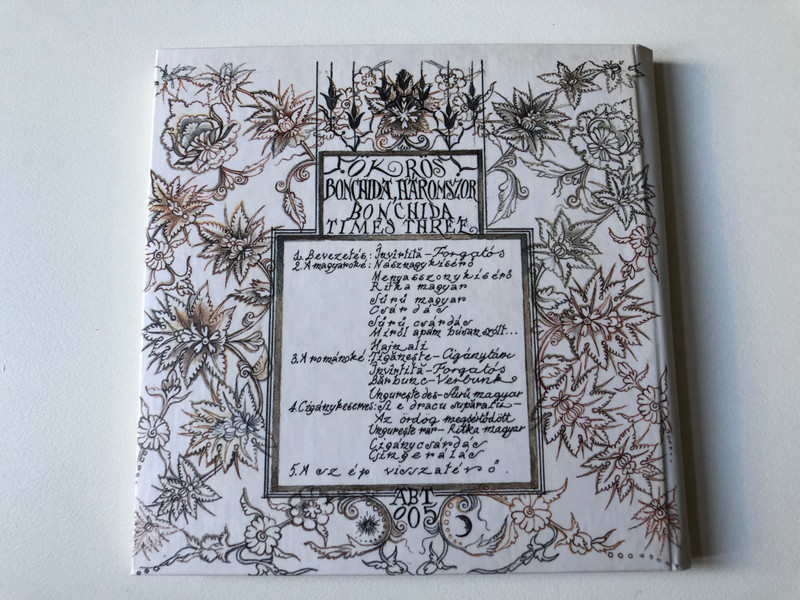 ÖKRÖS
BONCHIDA, HÁROMSZOR
BONCHIDA
TIMES THREE
1. Bevezetés: Învîrtită - Forgatós
2. A magyaroké: Násznagykísérő
Menyasszonykísérő
Ritka magyar
Sűrű magyar
Csárdás
Sűrű csárdás
Miről apám búsan szólt...
Hajnali
3. A románoké: Țigănește - Cigánytánc
Învîrtită - Forgatós
Bărbunc - Verbunk
Ungurește des - Sűrű magyar
4. Cigánykeserves: Și e dracu supăratu -
Az ördög megsértődött
Ungurește rar - Ritka magyar
Cigánycsárdás
Csingerálás
5. A szép visszatérő.
ABT
005